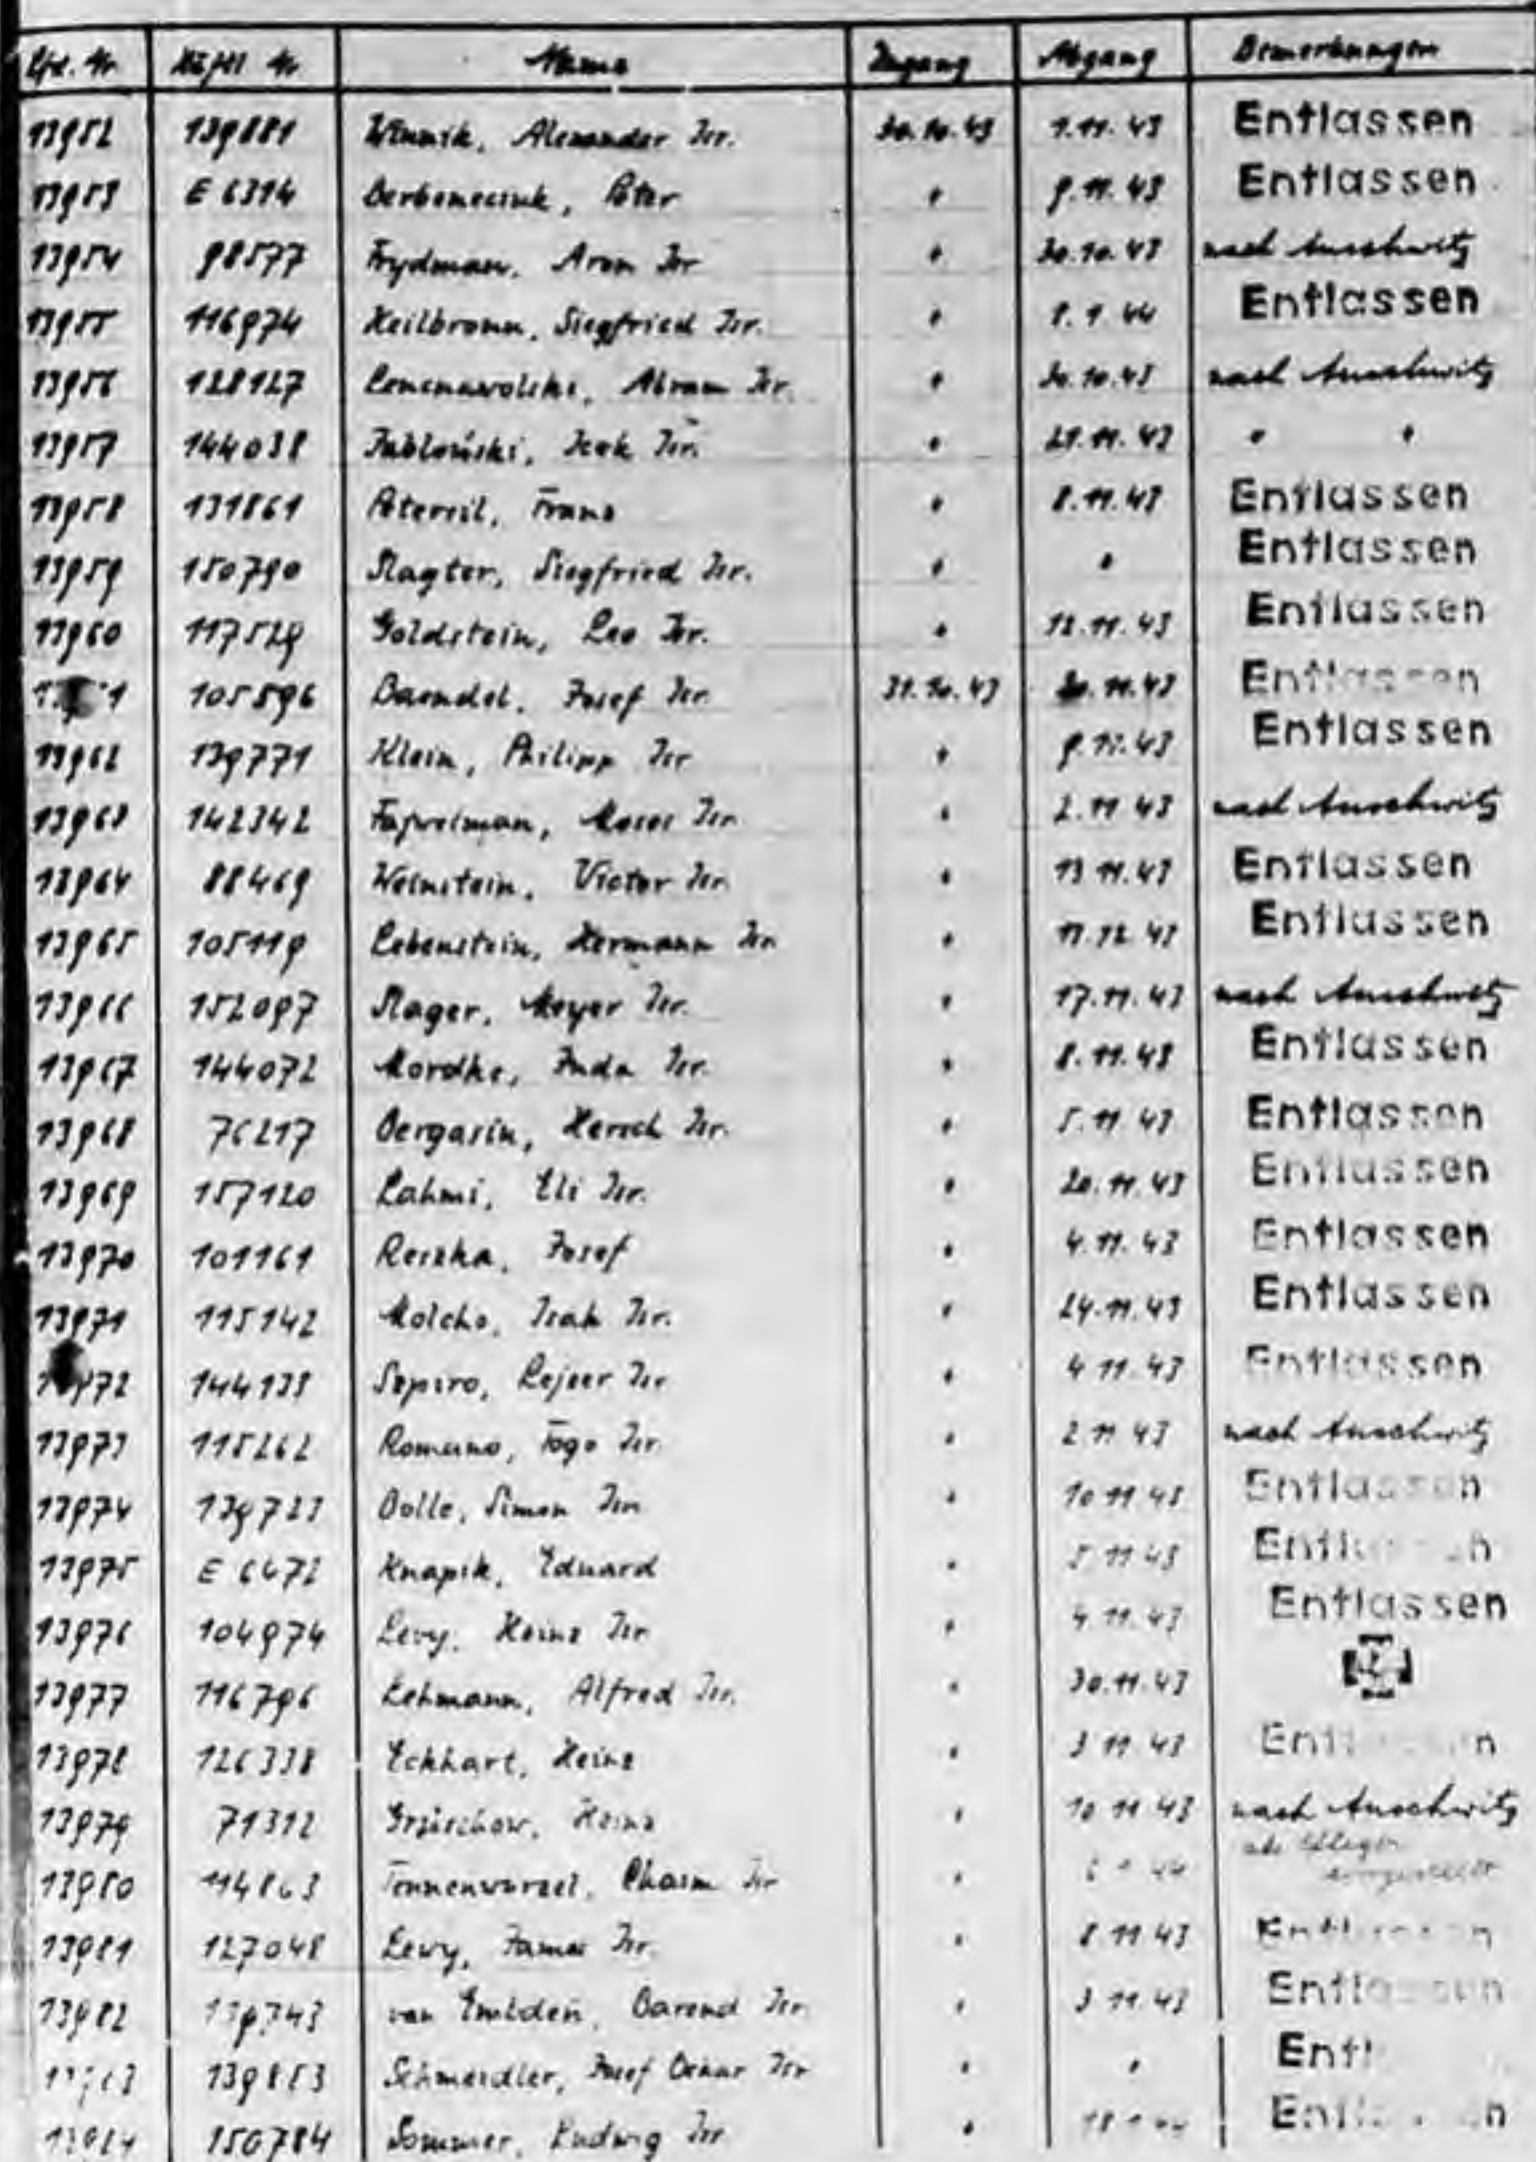 Lfd. Nr Häftl Nr Name Zugang Abgang Bemerkungen
13952 139881 Winnik, Alexander Isr. 30.10.43 1.11.43 Entlassen
13953 E 6314 Peter " 9.11.43 Entlassen
13954 98577 Frydman, Aron Isr " 30.10.43 nach Auschwitz
13955 116974 Heilbronn, Siegfried Isr. " 8.1.44 Entlassen
13956 128127 Abram Isr. " 30.10.43 nach Auschwitz
13957 144038 Jabloński, Icek Isr. " 21.11.43 " "
13958 131861 Franz " 8.11.43 Entlassen
13959 150790 Slagter, Siegfried Isr. " " Entlassen
13960 117529 Goldstein, Leo Isr. " 12.11.43 Entlassen
105596 Baendel, Josef Isr. 31.10.43 20.11.43 Entlassen
13962 139771 Klein, Philipp Isr " 9.11.43 Entlassen
13963 142342 Moses Isr. " 2.11.43 nach Auschwitz
13964 88469 Weinstein, Victor Isr. " 13.11.43 Entlassen
13965 105119 Lebenstein, Hermann Isr. " 11.12.43 Entlassen
13966 152097 Slager, Meyer Isr. " 17.11.43 nach Auschwitz
13967 144072 Mordke, Juda Isr. " 8.11.43 Entlassen
13968 76217 Bergasin, Hersch Isr. " 5.11.43 Entlassen
13969 157120 Lahmi, Eli Isr. " 20.11.43 Entlassen
13970 101161 Reszka, Josef " 4.11.43 Entlassen
13971 115142 Molcho, Isak Isr. " 24.11.43 Entlassen
13972 144138 Szpiro, Lejzer Isr " 4.11.43 Entlassen
13973 115262 Romano, Togo Isr. " 2.11.43 nach Auschwitz
13974 139723 Dolle, Simon Isr. " 10.11.43 Entlassen
13975 E 6472 Knapik, Eduard " 5.11.43 Entlassen
13976 104974 Levy, Heinz Isr. " 4.11.43 Entlassen
13977 116796 Lehmann, Alfred Isr. " 30.11.43
13978 126338 Eckhart, Heinz " 3.11.43 Entlassen
13979 71312 Grüschow, Heinz " 10.11.43 nach Auschwitz
als Pfleger
13980 114863 Tonnenwurzel, Chaim Isr "
13981 127048 Levy, James Isr. " 8.11.43 Entlassen
13982 139743 van Embden, Barend Isr. " 3.11.43 Entlassen
139853 Schmeidler, Josef Oskar Isr " " Entl
150784 Sommer, Ludwig Isr " Entlassen